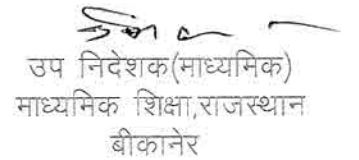 उप निदेशक(माध्यमिक)
माध्यमिक शिक्षा,राजस्थान
बीकानेर